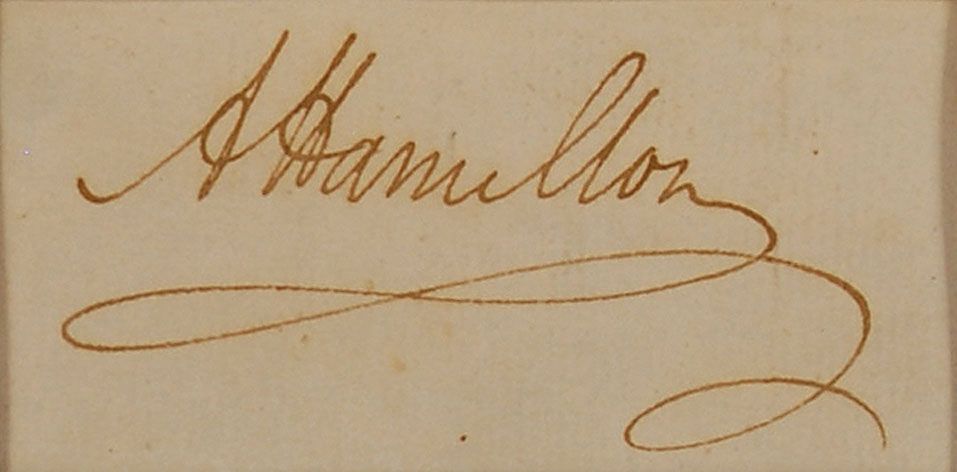 A Hamilton